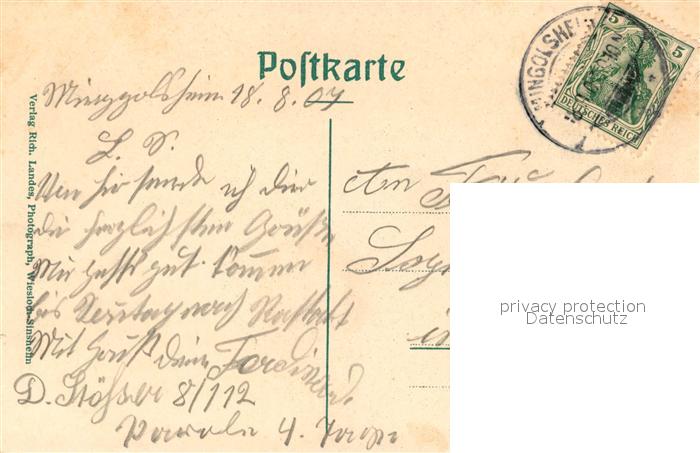 Postkarte
MINGOLSHEIM
5 5
DEUTSCHES REICH
Mingolsheim 18. 8. 07
L. S.
Von hier sende ich dir
die herzlichsten Grüße
Mir geht's gut. Kommen
bis Sonntag nach Rastatt
Mit Gruß dein Ferdinand.
D. Stößer 8/112
Parole 4. Tage
An
in
Verlag Rich. Landes, Photograph, Wiesloch-Sinsheim
privacy protection
Datenschutz